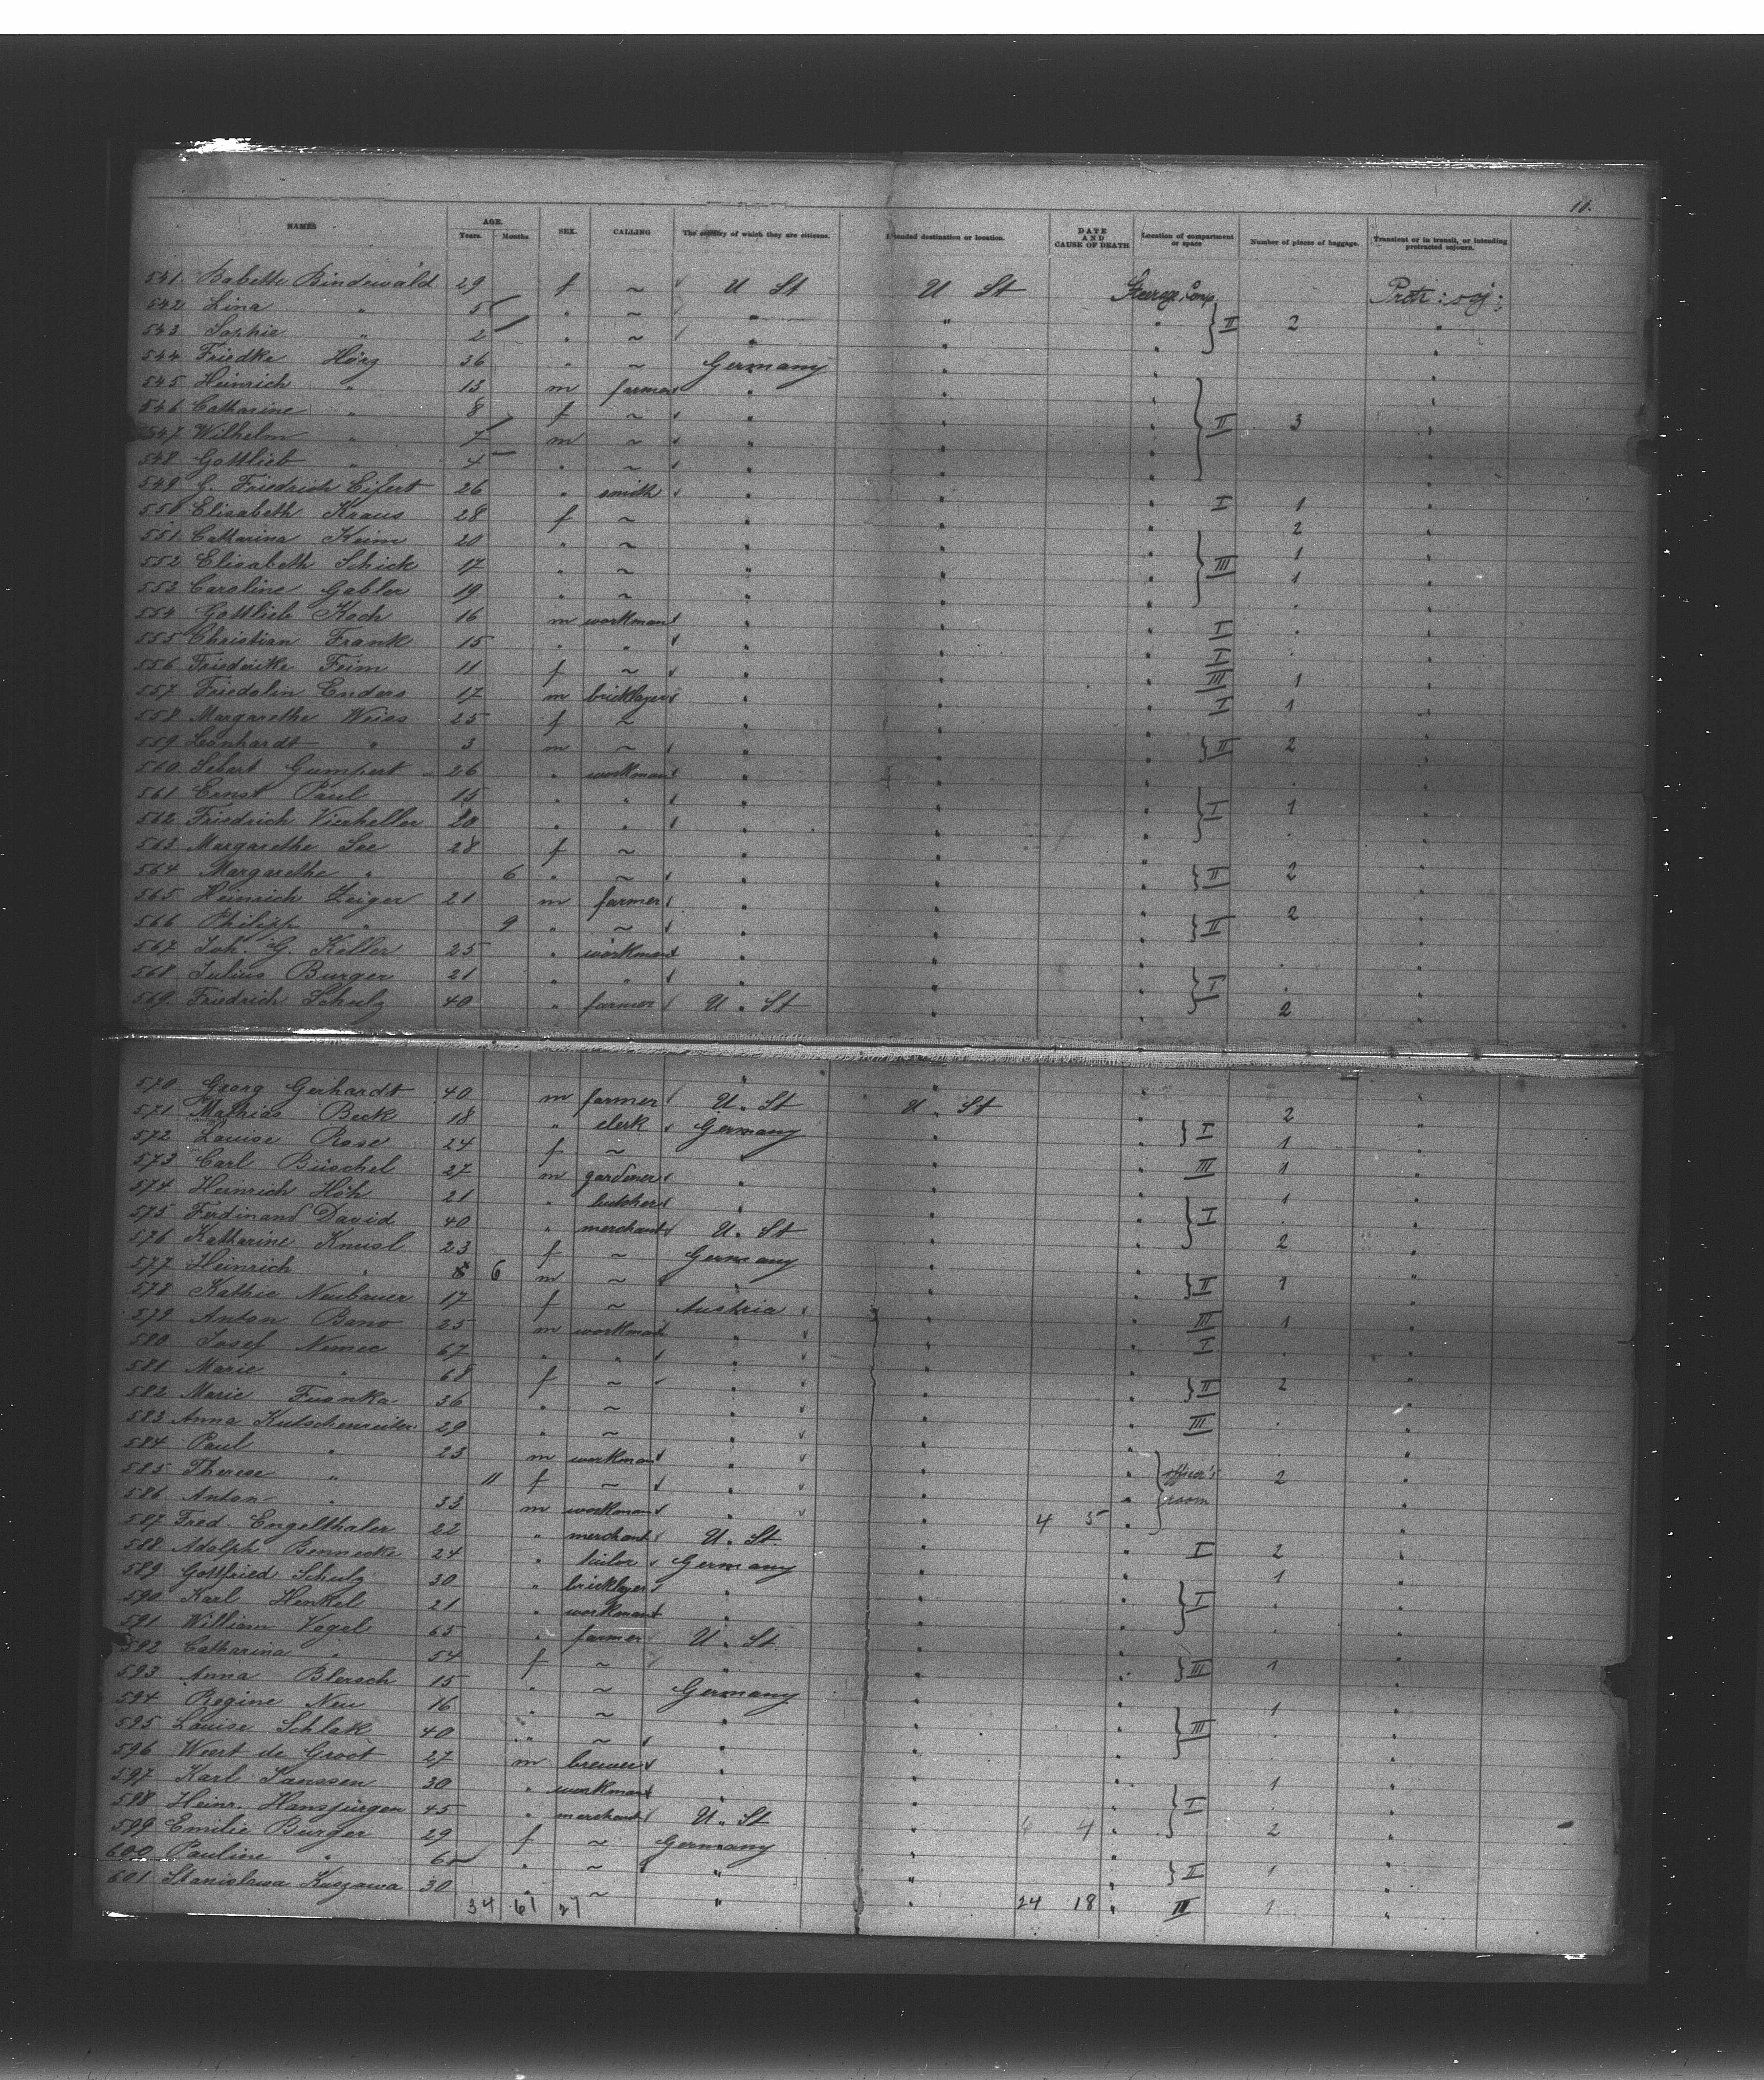 10.
NAMES AGE. Years. Months SEX. CALLING The country of which they are citizens. Intended destination or location. DATE AND CAUSE OF DEATH Location of compartment or space Number of pieces of baggage. Transient or in transit, or intending protracted sojourn.
541. Babette Bindewald 29 f ~ U St U St Steerage Comp. Protr: soj:
542 Lina " 5 " ~ " " " II 2 "
543 Sophie " 2 " ~ " " "
544 Friedke Hörz 36 " ~ Germany " " "
545 Heinrich " 13 m farmer " " " "
546 Catharine " 8 f ~ " " " II 3 "
547 Wilhelm " 7 m ~ " " " "
548 Gottlieb " 4 " ~ " " " "
549 G. Friedrich Eifert 26 " smith " " " I 1 "
550 Elisabeth Kraus 28 f ~ " " " 2 "
551 Catharina Keim 20 " ~ " " " III 1 "
552 Elisabeth Schick 17 " ~ " " " 1 "
553 Caroline Gabler 19 " ~ " " " " "
554 Gottlieb Koch 16 m workman " " " I " "
555 Christian Frank 15 " " " " " I " "
556 Friederike Feim 11 f ~ " " " III 1 "
557 Friedolin Enders 17 m bricklayer " " " I 1 "
558 Margarethe Weiss 25 f ~ " " "
559 Leonhardt " 3 m ~ " " " II 2 "
560 Gumpert 26 " workman " " " " "
561 Ernst Paul 15 " " " " " I 1 "
562 Friedrich Vierheller 20 " " " " " " "
563 Margarethe See 28 f ~ " " " "
564 Margarethe " 6 " ~ " " " II 2 "
565 Heinrich Zeiger 21 m farmer " " " 2 "
566 Philipp " 9 " ~ " " " II "
567 Joh. G. Keller 25 " workman " " " " "
568 Julius Burger 21 " " " " " I " "
569 Friedrich Schulz 40 " farmer U. St " " 2 "
570 Georg Gerhardt 40 m farmer U. St U. St " 2 "
571 Mathias Beck 18 " clerk Germany " " I 1 "
572 Louise Rose 24 f ~ " " " III 1 "
573 Carl Büschel 27 m gardener " " " 1 "
574 Heinrich Höh 21 " butcher " " " I " "
575 Ferdinand David 40 " merchant U. St " " 2 "
576 Katharine Knusl 23 f ~ Germany " " "
577 Heinrich " 6 m ~ " " " II 1 "
578 Kathie Neubauer 17 f ~ Austria " " III 1 "
579 Anton Bano 25 m workman " " " I " "
580 Josef Nemec 67 " " " " "
581 Marie " 68 f ~ " " " II 2 "
582 Marie 36 " ~ " " " III " "
583 Anna Kutschenreiter 29 " ~ " " " " "
584 Paul " 23 m workman " " " officer's 2 "
585 Therese " 11 f ~ " " " room
586 Anton " 33 m workman " " 4 5 " "
587 Fred. Engelthaler 22 " merchant U. St " " I 2 "
588 Adolph Bennecke 24 " tailor Germany " " 1 "
589 Gottfried Schulz 30 " bricklayer " " " I " "
590 Karl Henkel 21 " workman " " " " "
591 William Vogel 65 " farmer U. St " " "
592 Catharina " 54 f ~ " " " III 1 "
593 Anna Blersch 15 " ~ Germany " " 1 "
594 Regine Neu 16 " ~ " " " III " "
595 Louise Schlak 40 " ~ " " " " "
596 Weert de Groot 27 m brewer " " " 1 "
597 Karl Janssen 30 " workman " " " I " "
598 Heinr. Hansjürgen 45 " merchant U. St " 4 " 2 "
599 Emilie Burger 29 f ~ Germany " " "
600 Pauline " 6 " ~ " " " II 1 "
601 Stanislawa Kuszawa 30 " ~ " " 24 18 " III 1 "
34 61 27